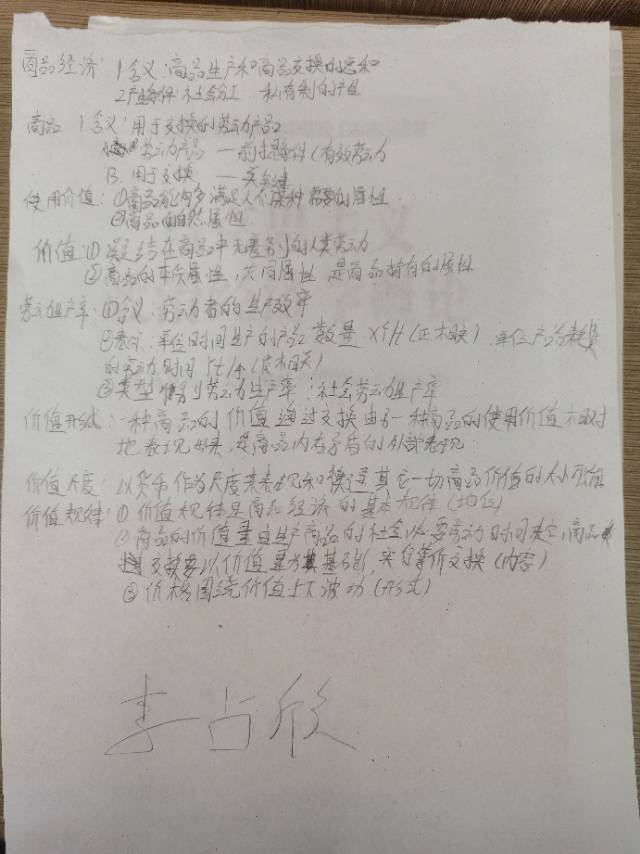 商品经济 1.含义:商品生产和商品交换的总和
2.产生条件 社会分工 私有制的产生
商品 1.含义:用于交换的劳动产品
劳动产品 — 前提条件(有效劳动
B.用于交换 — 关键
使用价值:①商品能够满足人们某种需要的属性
②商品的自然属性
价值:①凝结在商品中无差别的人类劳动
②商品的本质属性,共同属性 是商品特有的属性
劳动生产率:①含义:劳动者的生产效率
②表示:单位时间生产的产品数量 x个/H(正相关),单位产品耗费
的劳动时间 (反相关)
③类型 个别劳动生产率;社会劳动生产率
价值形式:一种商品的价值通过交换由另一种商品的使用价值相对
地表现出来,是商品内在矛盾的外部表现
价值尺度:以货币作为尺度来表现和衡量其它一切商品价值的大小
价值规律:①价值规律是商品经济的基本规律(地位)
②商品的价值量由生产商品的社会必要劳动时间决定,商品
交换要以价值量为基础,实行等价交换(内容)
③价格围绕价值上下波动(形式)
李占欣